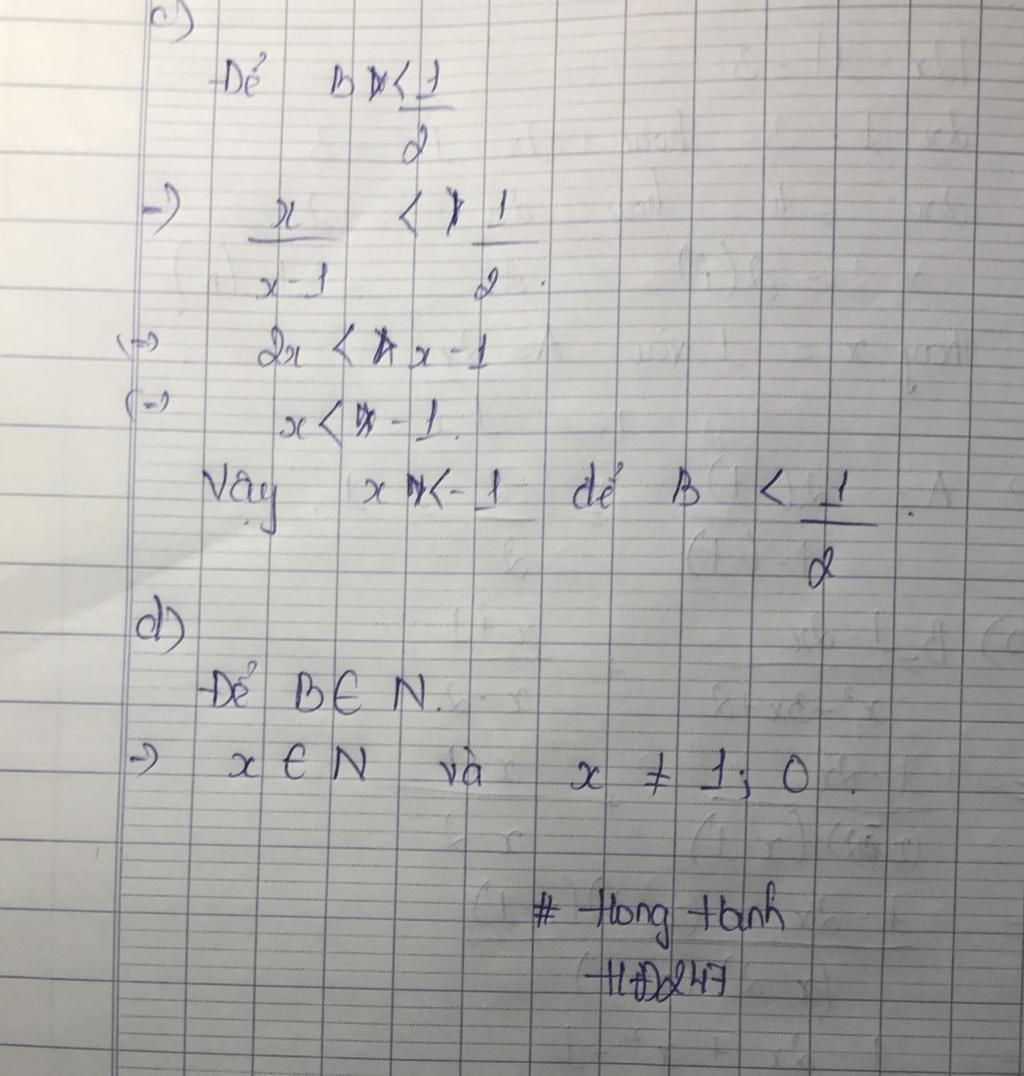 c)
Để B < 1/2
=) x/x-1 < 1/2.
(=) 2x < x-1
(=) x < -1.
Vậy x < -1 để B < 1/2.
d)
Để B ∈ N.
=) x ∈ N và x ≠ 1; 0.
# Hong Hanh
HĐ247